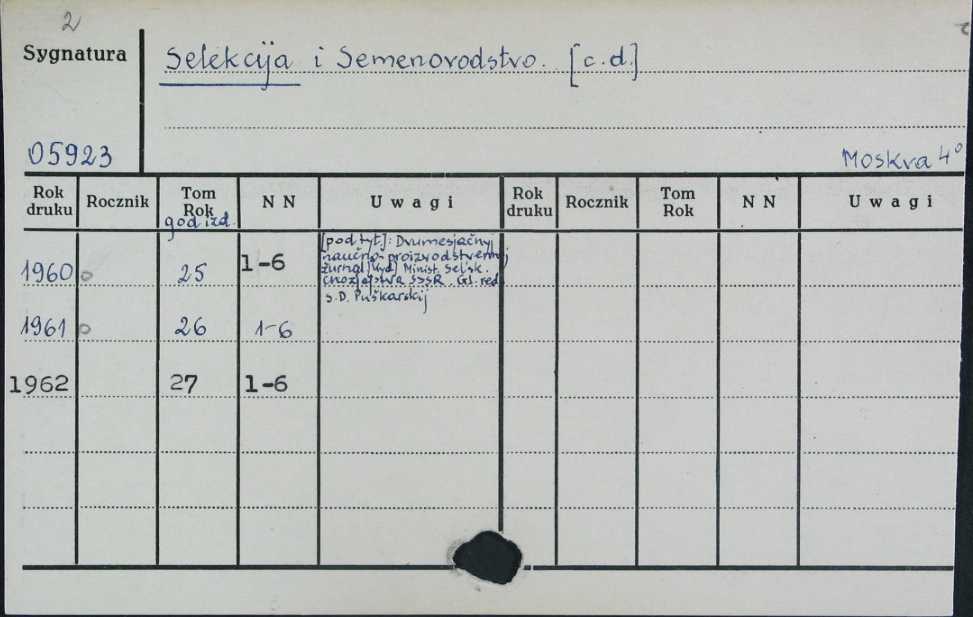 2
Sygnatura
Selekcija i Semenovodstvo. [c.d.]
05923
Moskva 4°
Rok druku Rocznik Tom Rok N N Uwagi Rok druku Rocznik Tom Rok N N Uwagi
god izd.
1960 25 1-6
[podtyt]: Dvumesjačnyj
naučno-proizvodstvennyj
žurnal Minist. Sel'sk.
SSSR. Gl. red.
S.D. Puškarskij
1961 26 1-6
1962 27 1-6